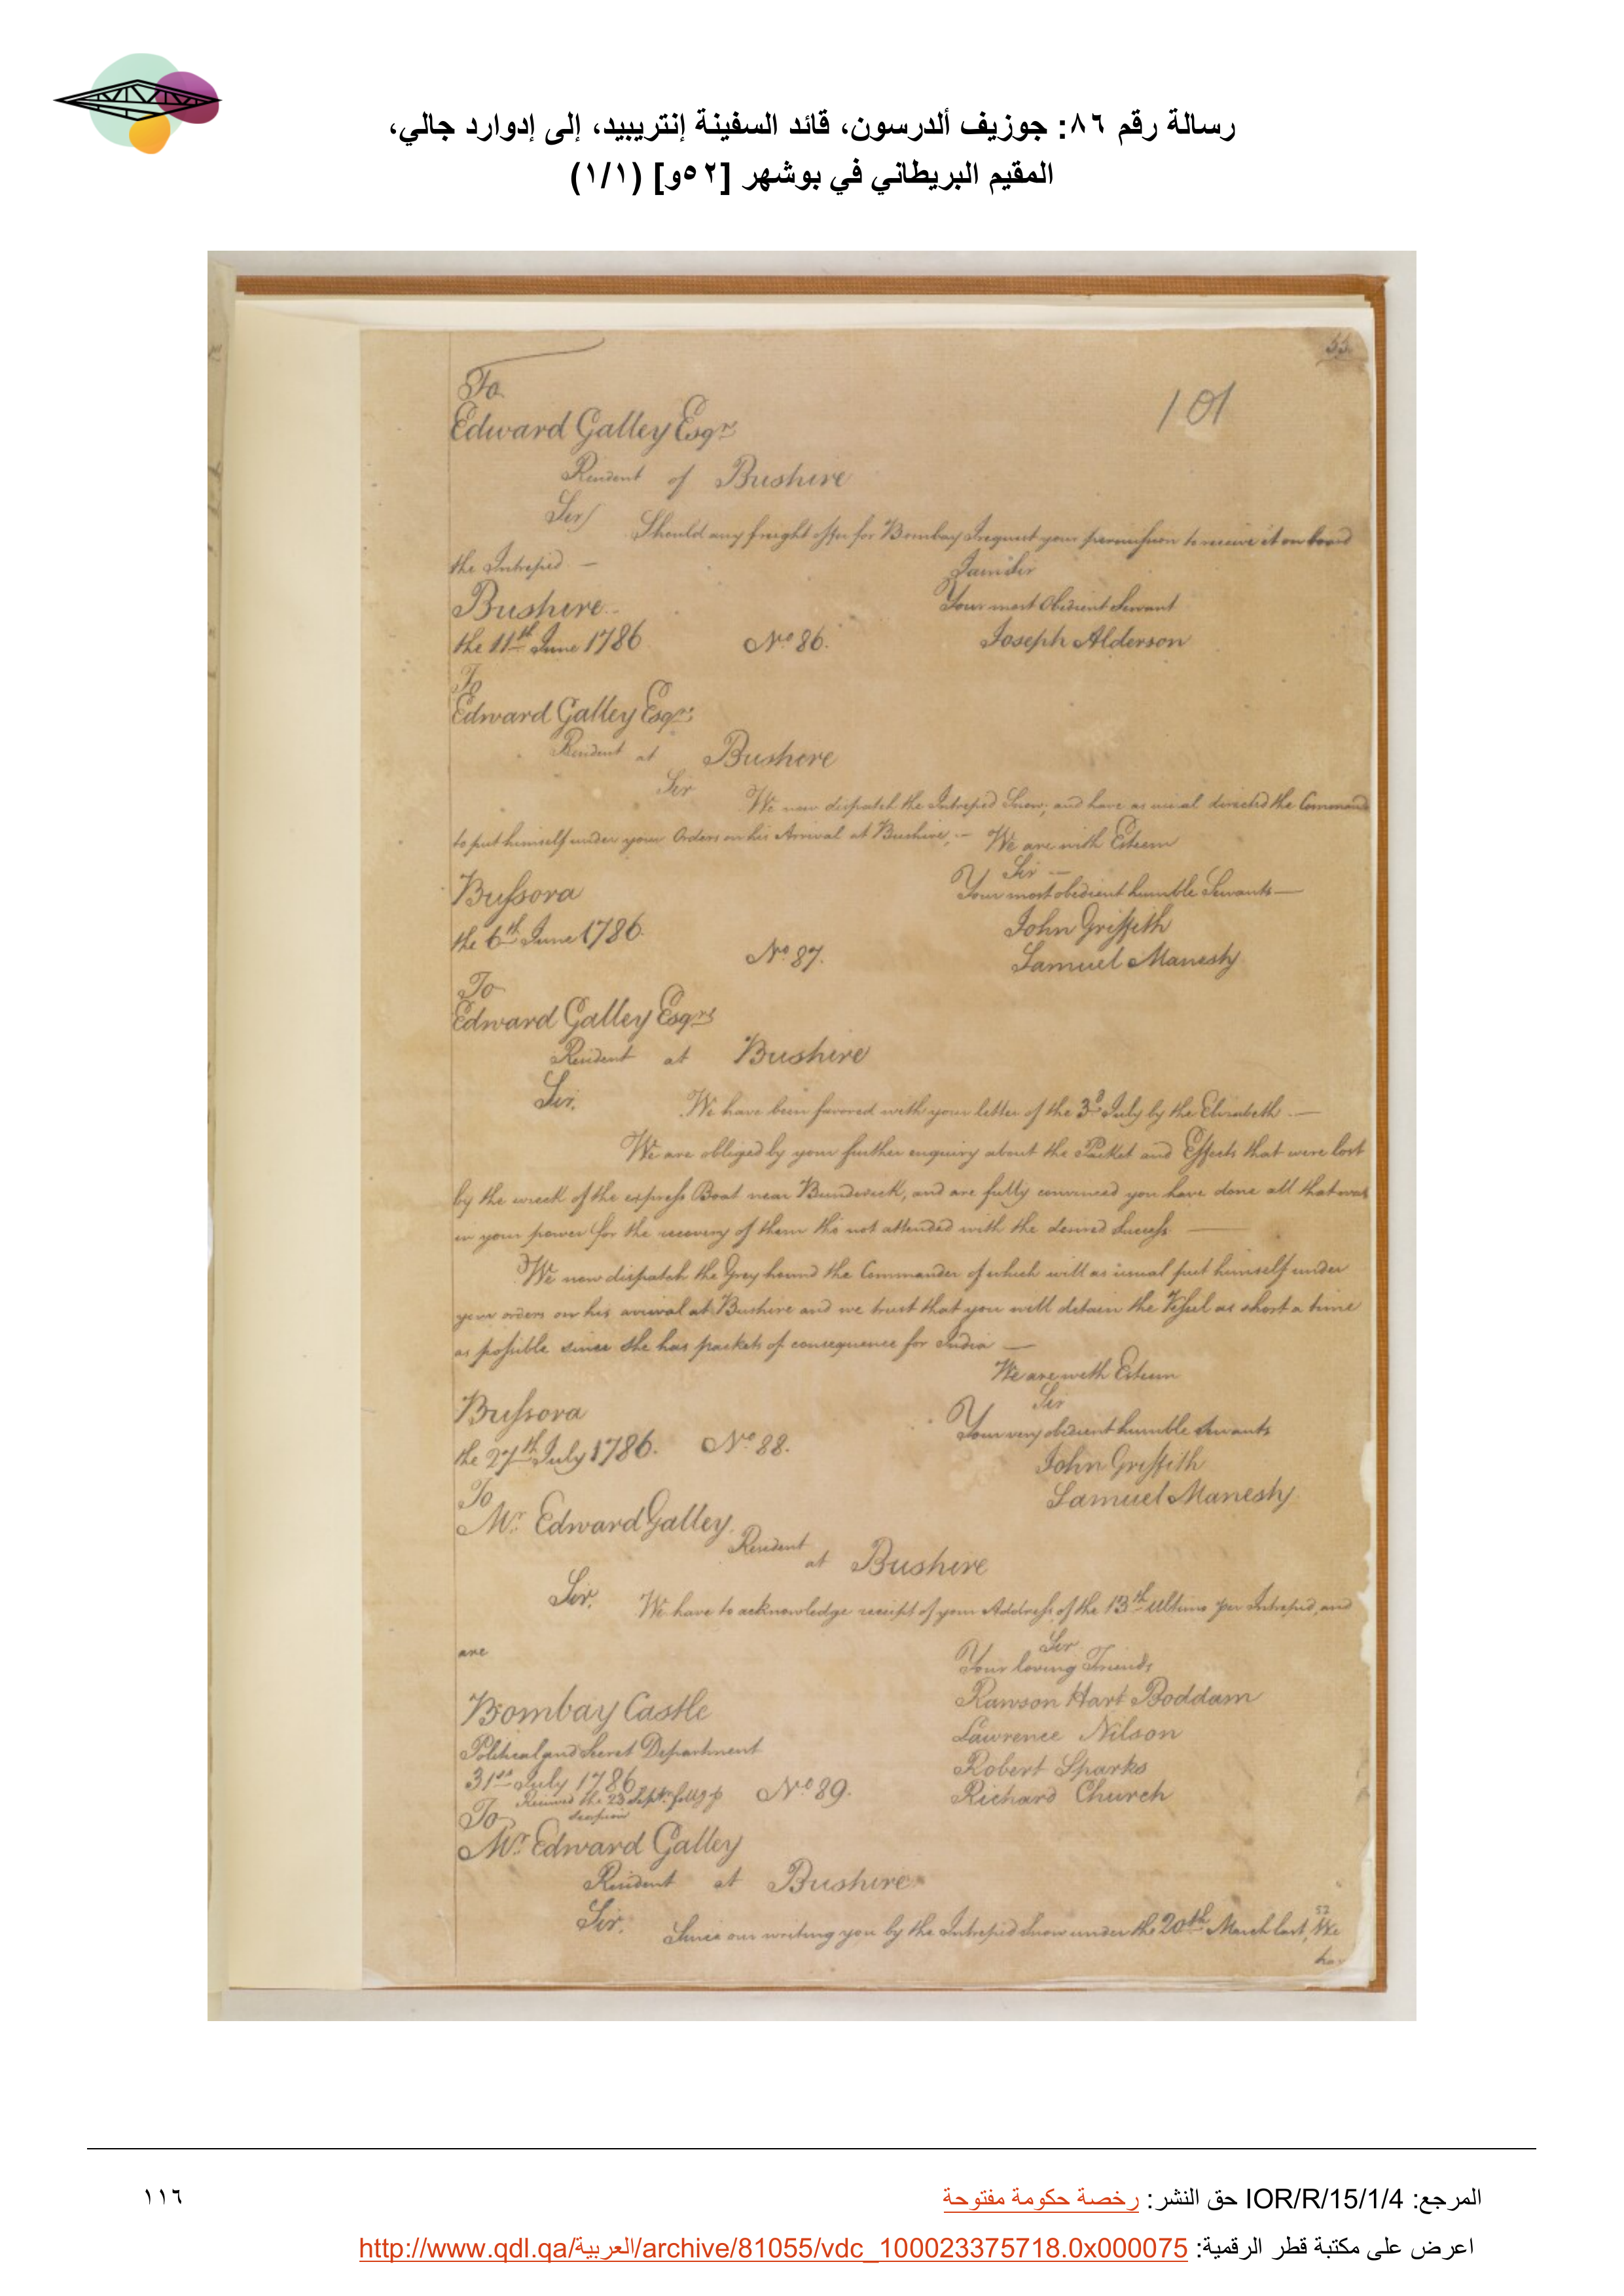 رسالة رقم ٨٦: جوزيف ألدرسون، قائد السفينة إنتريبيد، إلى إدوارد جالي،
المقيم البريطاني في بوشهر [٥٢و] (١/١)
53.
101
To
Edward Galley Esqr.
Resident of Bushire
Sir/ Should any freight offer for Bombay I request your permission to receive it on board
the Intrepid —
I am Sir
Bushire
Your most Obedient Servant
the 11th June 1786 No. 86. Joseph Alderson
To
Edward Galley Esqr.
Resident at Bushire
Sir We now dispatch the Intrepid Snow; and have as usual directed the Command
to put himself under your Orders on his Arrival at Bushire, — We are with Esteem
Sir —
Bussora Your most obedient humble Servants —
the 6th June 1786 John Griffith
No. 87. Samuel Manesty
To
Edward Galley Esqrs
Resident at Bushire
Sir. We have been favored with your letter of the 3d July by the Elizabeth. —
We are obliged by your further enquiry about the Packet and Effects that were lost
by the wreck of the express Boat near Bundereek, and are fully convinced you have done all that was
in your power for the recovery of them tho not attended with the desired Success —
We now dispatch the Grey hound the Commander of which will as usual put himself under
your orders on his arrival at Bushire and we trust that you will detain the Vessel as short a time
as possible since she has packets of consequence for India —
We are with Esteem
Sir
Bussora Your very obedient humble Servants
the 27th July 1786. No. 88. John Griffith
Samuel Manesty.
To
Mr. Edward Galley.
Resident at Bushire
Sir. We have to acknowledge receipt of your Address of the 13th Ultimo per Intrepid, and
are Sir
Your loving Friends
Bombay Castle Rawson Hart Boddam
Political and Secret Department Lawrence Nilson
31st July 1786 Robert Sparks
Received the 23 Septr. follg p No. 89. Richard Church
Scorpion
To
Mr. Edward Galley
Resident at Bushire
Sir. Since our writing you by the Intrepid Snow under the 20th March last, We
52
ha
المرجع: IOR/R/15/1/4 حق النشر: رخصة حكومة مفتوحة
١١٦
اعرض على مكتبة قطر الرقمية: http://www.qdl.qa/العربية/archive/81055/vdc_100023375718.0x000075